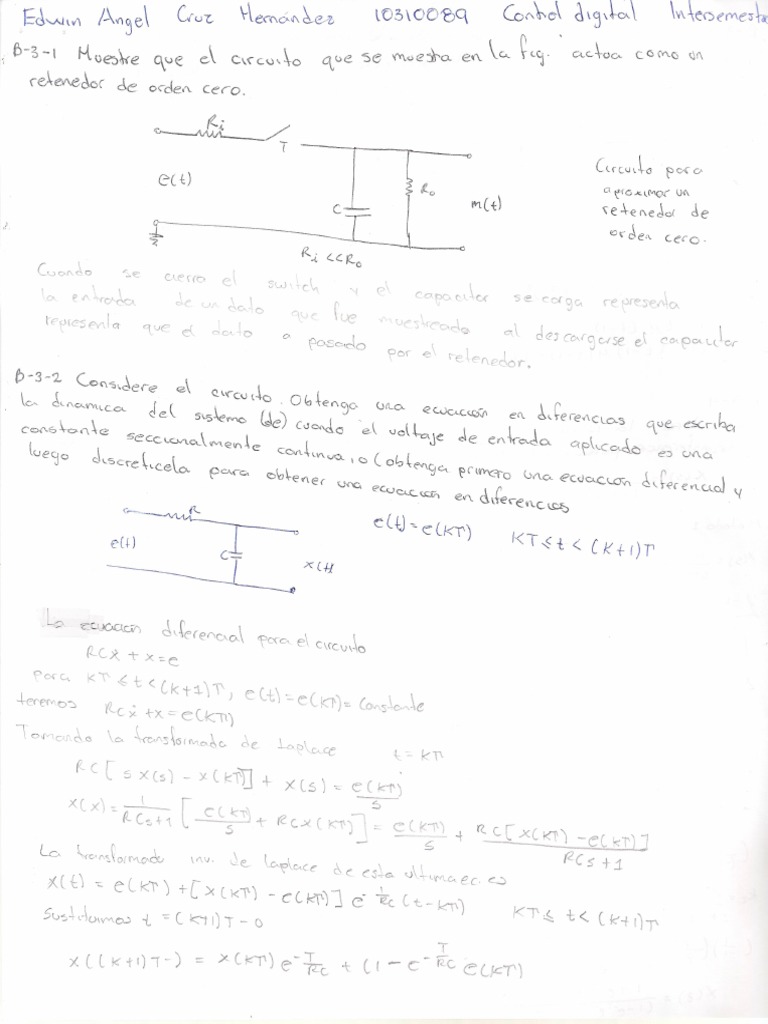 Edwin Angel Cruz Hernández 10310089 Control digital Intersemestra
B-3-1 Muestre que el circuito que se muesta en la fig. actua como un
retenedor de orden cero.
Ri
T
e(t)
C
Ro
m(t)
Ri <<Ro
Circuito para
aproximar un
retenedor de
orden cero.
Cuando se cierra el switch y el capacitor se carga representa
la entrada de un dato que fue muestreado al descargarse el capacitor
representa que el dato a pasado por el retenedor.
B-3-2 Considere el circuito. Obtenga una ecuación en diferencias que escriba
la dinamica del sistema (de) cuando el voltaje de entrada aplicado es una
constante seccionalmente continua, o (obtenga primero una ecuacion diferencial y
luego discreticela para obtener una ecuacion en diferencias
R
e(t)
C
x(t)
e(t)=e(KT) KT≤t<(K+1)T
La ecuacion diferencial para el circuito
RCẋ+x=e
para KT≤t<(K+1)T, e(t)=e(KT)=Constante
teremos RCẋ+x=e(KT)
Tomando la transformada de Laplace t=KT
RC[sX(s)-x(KT)]+X(s)=e(KT)/s
x(x)=1/RCs+1 [e(KT)/s + RCx(KT)] = e(KT)/s + RC[x(KT)-e(KT)]/RCs+1
La transformada inv. de laplace de esta ultima ec. es
x(t)=e(KT)+[x(KT)-e(KT)]e^-1/RC (t-KT) KT≤t<(K+1)T
Sustituimos t=(K+1)T-0
x((K+1)T-)=x(KT)e^-T/RC+(1-e^-T/RC e(KT)